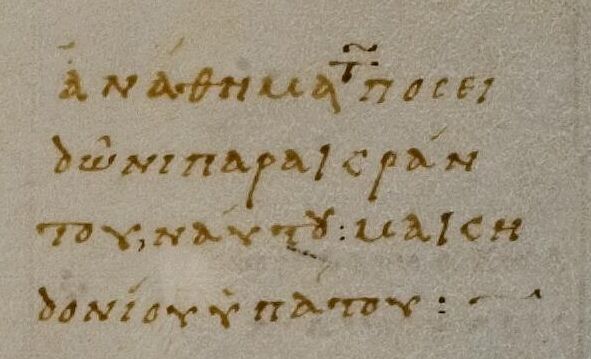 ἀνάθημα τ῀ ποσει
δῶνι παρα κράν
του, ναύτου : μακη
δονίου ὑπάτου : —